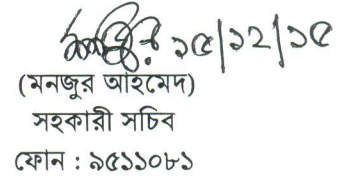 ১৫|১২|১৫
(মনজুর আহমেদ)
সহকারী সচিব
ফোন : ৯৫১১০৮১